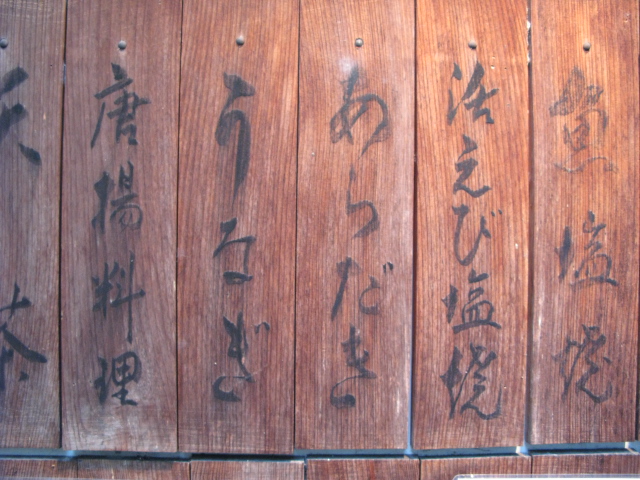 塩焼
活えび塩焼
あらだき
うなぎ
唐揚料理
天茶